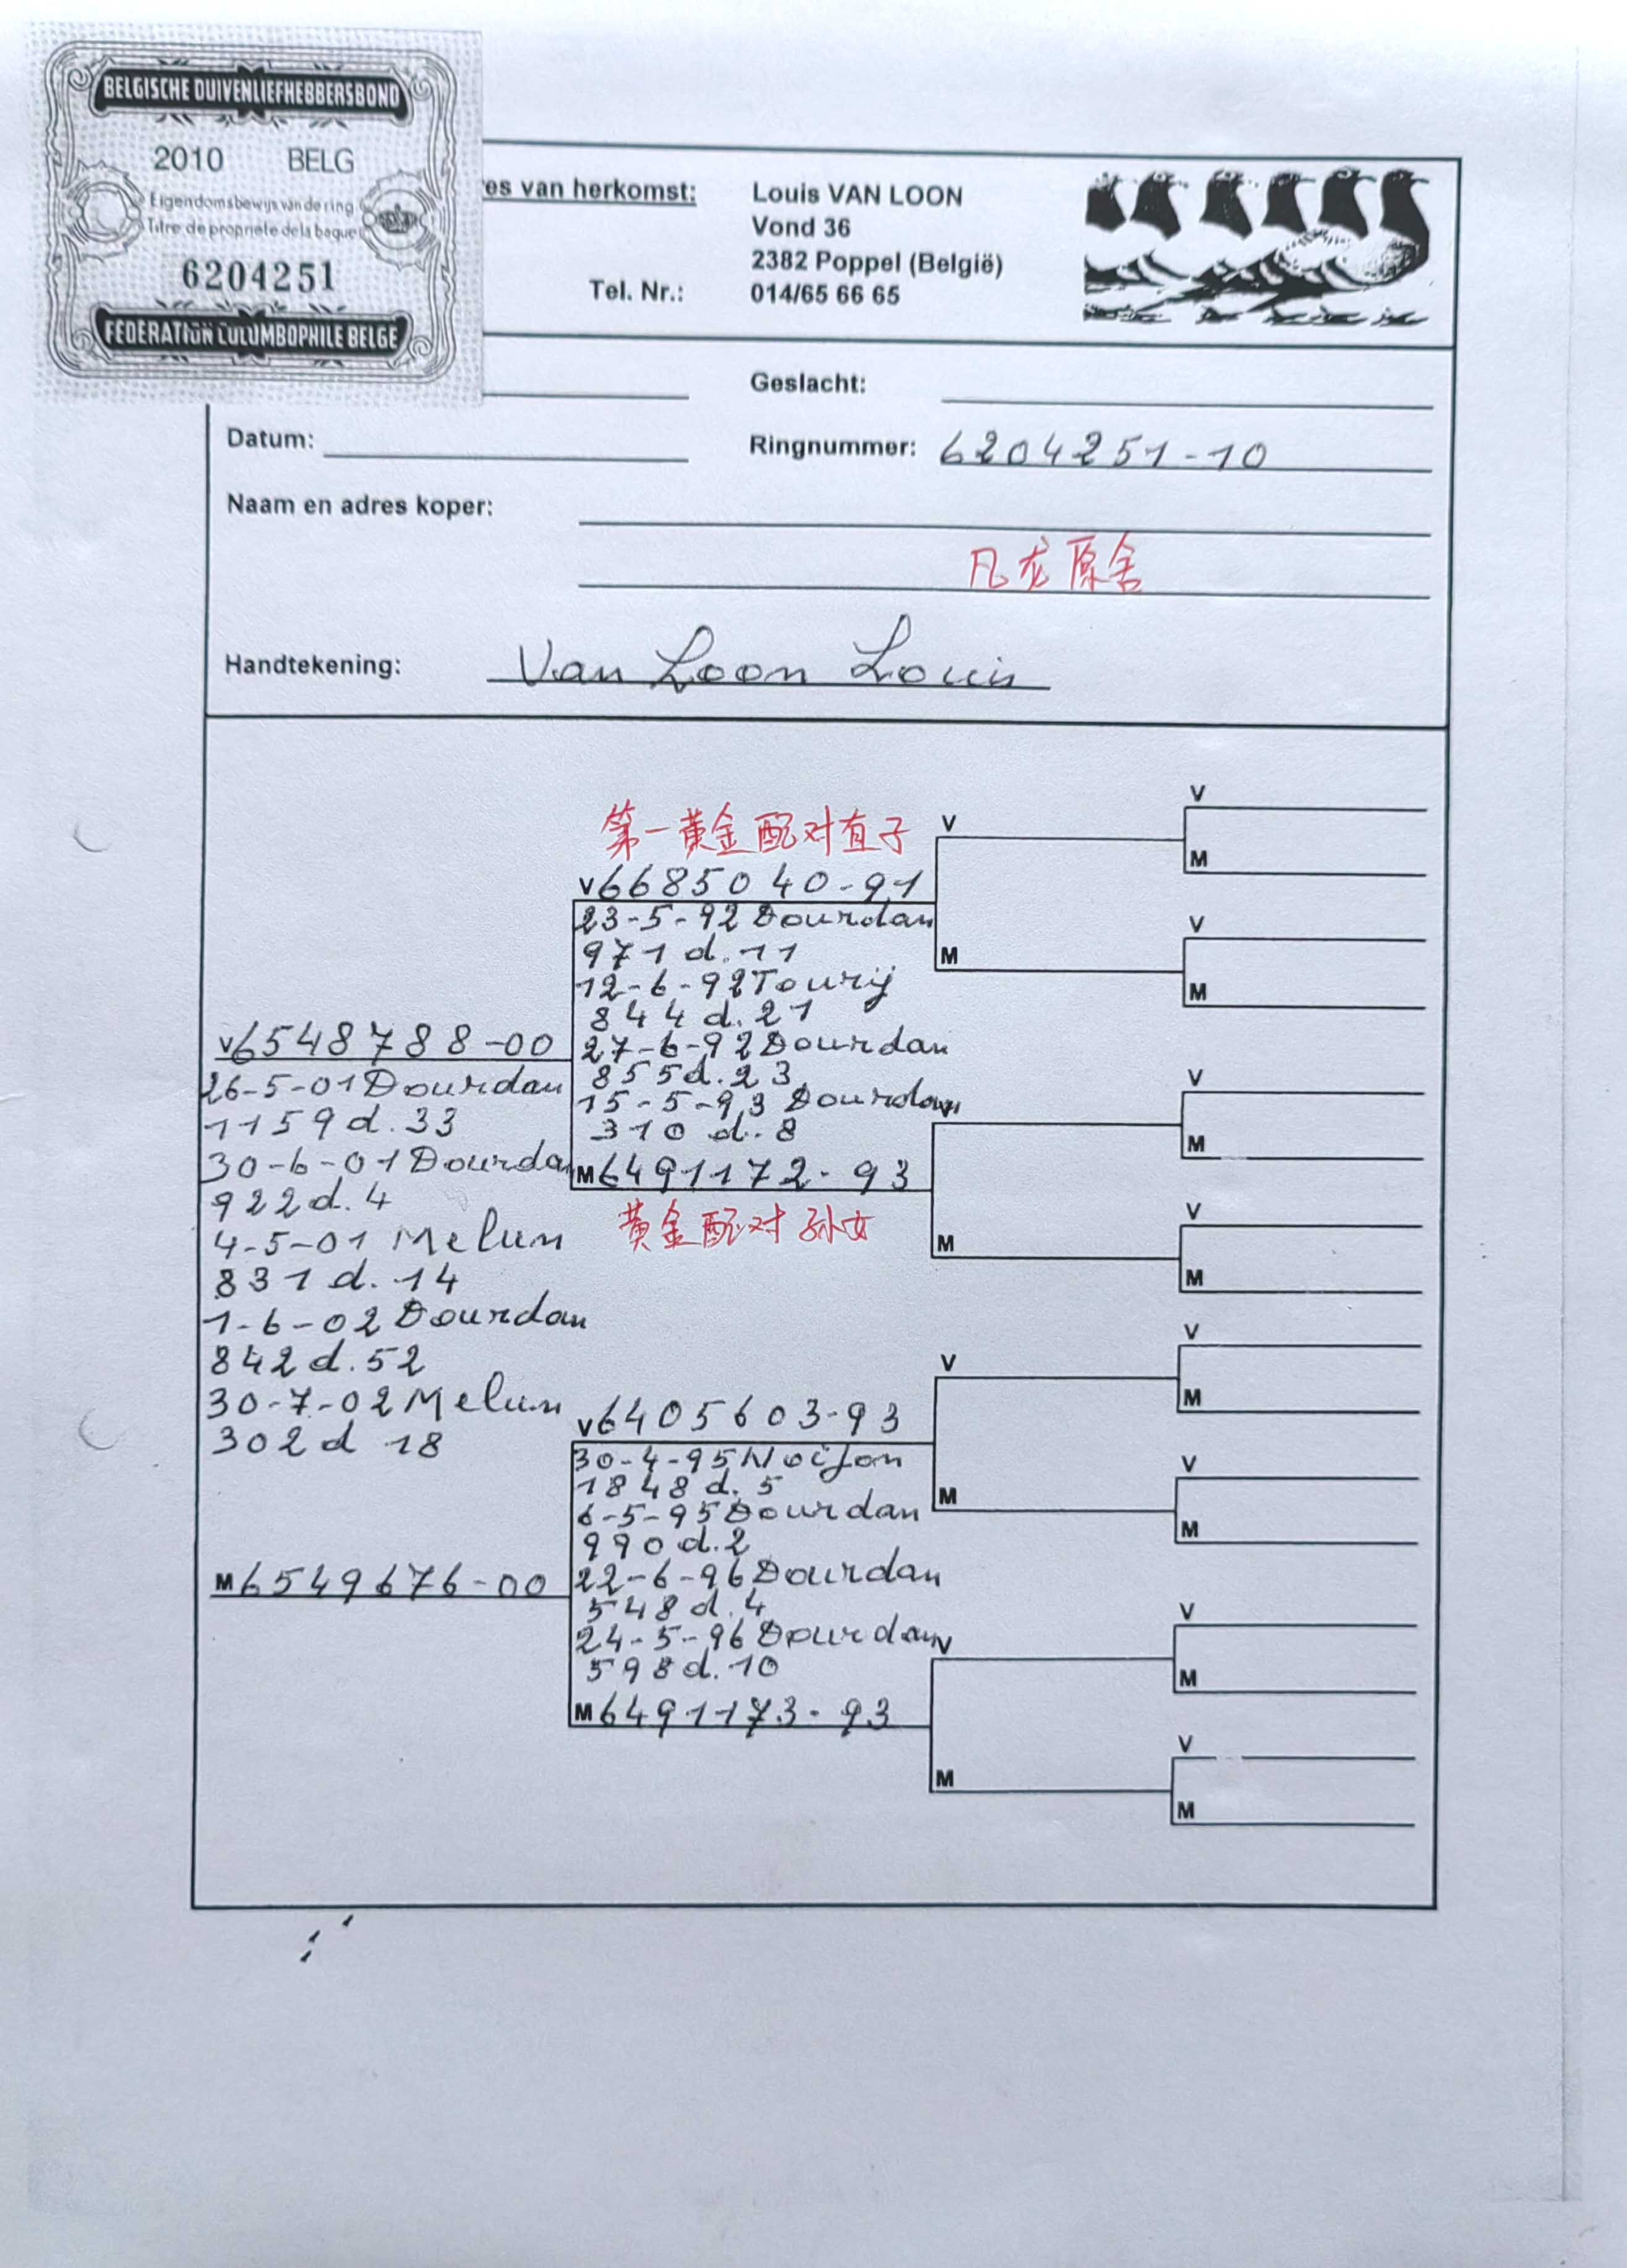 BELGISCHE DUIVENLIEFHEBBERSBOND
2010 BELG
Eigendomsbewijs van de ring
Titre de propriete de la bague
6204251
FEDERATION COLUMBOPHILE BELGE
es van herkomst: Louis VAN LOON
Vond 36
2382 Poppel (België)
Tel. Nr.: 014/65 66 65
Geslacht:
Datum:
Ringnummer: 6204251-10
Naam en adres koper:
凡龙原舍
Handtekening: Van Loon Louis
V6548788-00
26-5-01 Dourdan
1159 d. 33
30-6-01 Dourdan
922 d. 4
4-5-01 Melun
831 d. 14
1-6-02 Dourdan
842 d. 52
30-7-02 Melun
302 d 18
M6549676-00
第一黄金配对直子
V6685040-91
23-5-92 Dourdan
971 d. 11
12-6-92 Tourij
844 d. 21
27-6-92 Dourdan
855 d. 23
15-5-93 Dourdan
310 d. 8
M6491172-93
黄金配对孙女
V6405603-93
30-4-95 Noijon
1848 d. 5
6-5-95 Dourdan
990 d. 2
22-6-96 Dourdan
548 d. 4
24-5-96 Dourdan
598 d. 10
M6491173-93
V
M
V
M
V
M
V
M
V
M
V
M
V
M
V
M
V
M
V
M
V
M
V
M